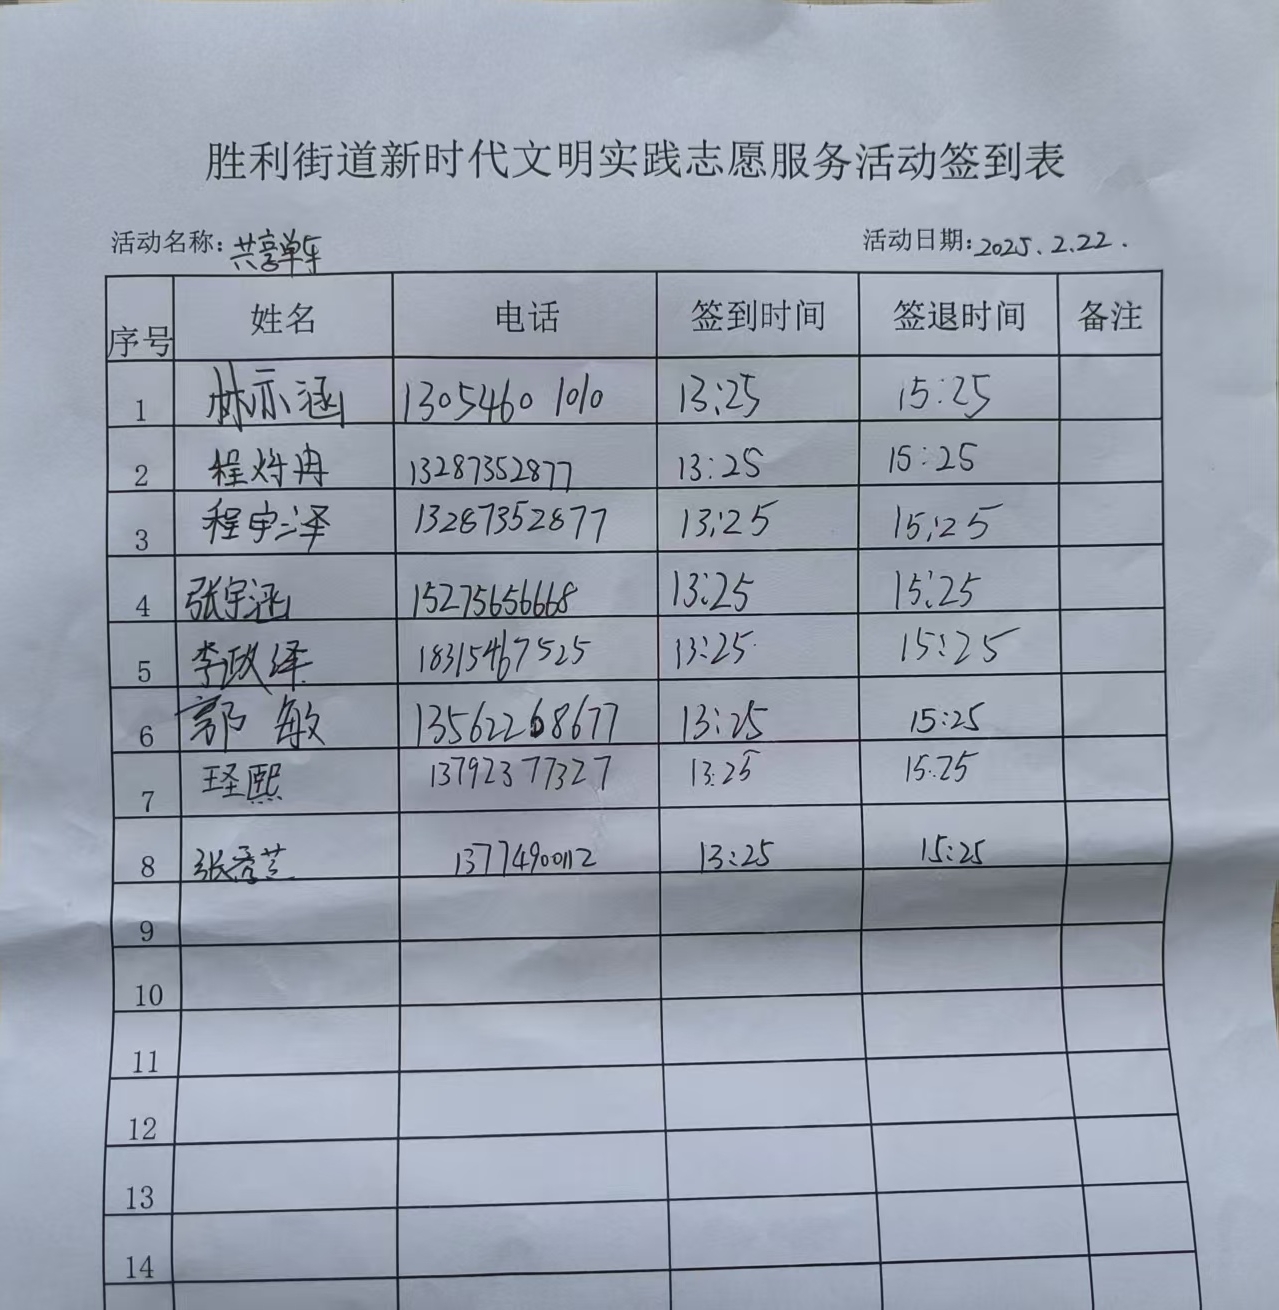 胜利街道新时代文明实践志愿服务活动签到表
活动名称：共享单车 活动日期：2025.2.22.
序号 姓名 电话 签到时间 签退时间 备注
1 林亦涵 13054601010 13:25 15:25
2 程炜冉 13287352877 13:25 15:25
3 程宇泽 13287352877 13:25 15:25
4 张宇涵 15275656668 13:25 15:25
5 李政绎 18315467525 13:25 15:25
6 郭敏 13562268677 13:25 15:25
7 王圣熙 13792377327 13:25 15:25
8 张秀芝 13774900112 13:25 15:25
9
10
11
12
13
14